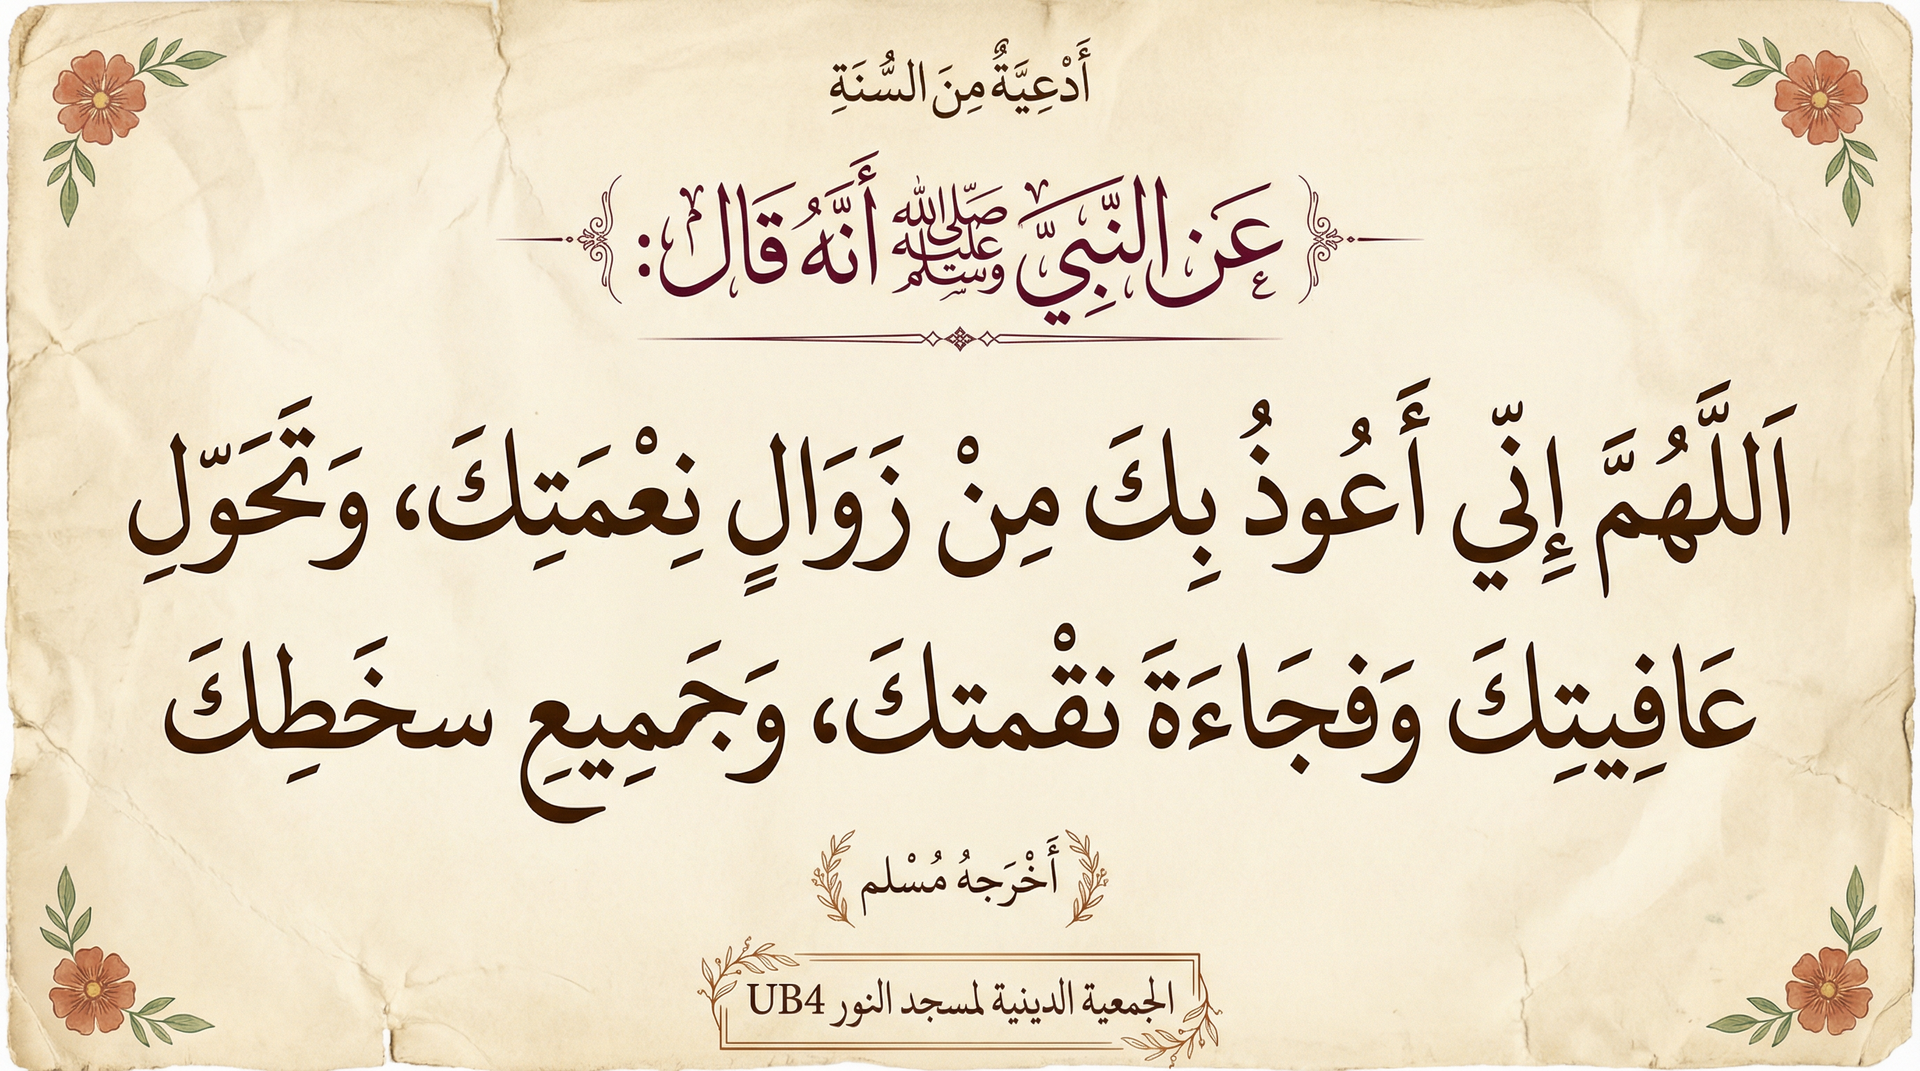 أَدْعِيَّةٌ مِنَ السُّنَةِ
عَنِ النَّبِيِّ ﷺ أَنَّهُ قَالَ:
اَللَّهُمَّ إِنّي أَعُوذُ بِكَ مِنْ زَوَالٍ نِعْمَتِكَ، وَتَحَوّلِ
عَافِيتِكَ وَفجَاءَةَ نقْمتكَ، وَجَمِيعِ سخَطِكَ
أَخْرَجهُ مُسْلم
الجمعية الدينية لمسجد النور UB4